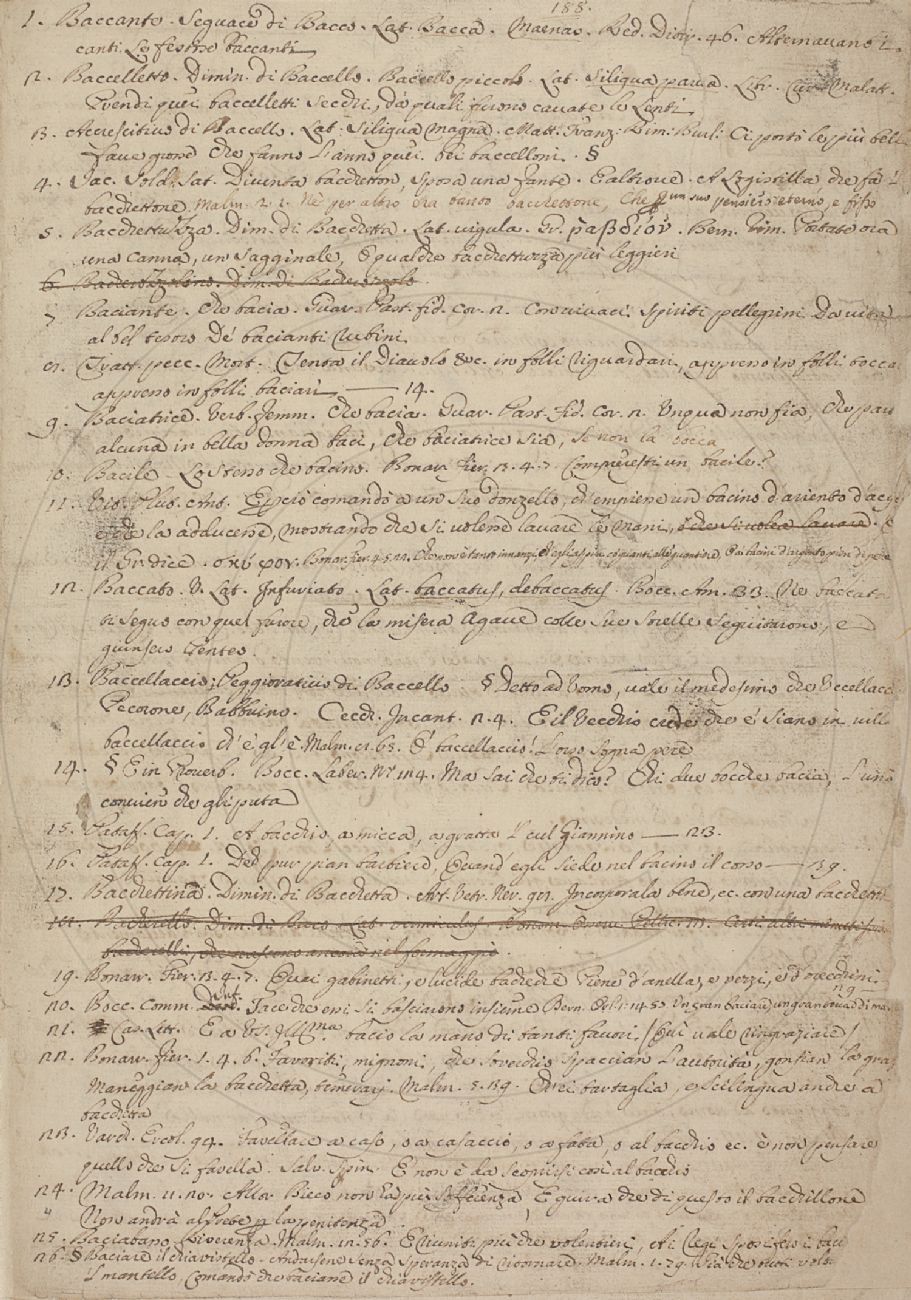 188.
1. Baccante. Seguace di Bacco. Lat. Bacca. Maenas. Red. Ditir. 46. Alternavano i
canti Le festose baccanti
2. Baccelletto. Dimin. di Baccello. Baccello piccolo. Lat. Siliqua parva. Libr. Cur. Malatt.
Prendi quei baccelletti secchi, da quali furono cavate le Lenti
3. Accrescitivo di Baccello. Lat. Siliqua magna. Matt. Franz. Rim. Burl. Ci portò le più belle
fave grosse che fanno l'anno quei bei baccelloni. §
4. Jac. Sold. Sat. Diventa bacchetton, sposa una fante. E altrove. A Legistilla, che fa il
bacchettone. Malm. 2. 1. Nè per altro era tanto bacchettone, Che un suo pensiero eterno, e fisso
5. Bacchettuzza. Dim. di Bacchetta. Lat. virgula. Gr. ῥαβδίον. Bern. rim. Portate ora
una canna, un sagginale, E qualche bacchettuzza più leggieri
6. Dim. di
7. Baciante. Che bacia. Guar. Past. fid. cor. 2. Con vivaci spiriti pellegrini Da vita
al bel tesoro De' bacianti rubini
8. Tratt. pecc. Mort. Tenta il Diavolo &c. in folli riguardari, appresso in folli bocca
appresso in folli baciari — 14.
9. Baciatrice. Verb. Femm. Che bacia. Guar. Past. Fid. Cor. 2. Unqua non fia, Che parte
alcuna in bella donna baci, Che baciatrice sia, Se non la bocca
10. Bacile. Lo stesso che bacino. Bonar. Fier. 3. 4. 7. Compreresti un bacile?
11. Vit. Plut. Ant. E perciò comandò a un suo donzello, ch'empiesse un bacino d'ariento d'acqua
e che la adducesse, mostrando che si volesse lavare le mani,
il Gr. dice Bonar. Fier. 4.
12. Baccato. V. Lat. Infuriato. Lat. baccatus, debaccatus. Bocc. Am. 33. Ne baccata
ti seguo con quel furore, che la misera Agave colle sue sorelle seguitarono, e
giunsero Penteo.
13. Baccellaccio; Peggiorativo di Baccello § Detto ad Uomo, vale il medesimo che Uccellaccio
Pecorone, Babbuino. Cecch. Incant. 2. 4. E il Vecchio crede che e' siano in villa
baccellaccio ch'egl'è Malm. 8. 65. O' baccellaccio! L'orso sogna pere
14. § E in Proverb. Bocc. Laber. N. 124. Ma sai che ti dico? Chi due bocche bacia, L'una
conviene che gli puta
15. Pataff. Cap. 1. A bacchio, a micca, a gratta l'cul Giannino — 23.
16. Pataff. Cap. 1. pur pian barbiere, Quand'egli siede nel bacino il corso — 39.
17. Bacchettina. Dimin. di Bacchetta. Art. Vetr. Ner. 91. Incorporala bene, ec. con una bacchettina
18. Bacherello. Dim. di Baco. Lat.
bacherelli, che nascono ancora nel formaggio
19. Bonar. Fier. 3. 4. 7. Quei gabinetti, e lucide bacheche Piene d'anella, e vezzi, e d'orecchini
— 29 —
20. Bocc. Comm. Inf. Tace che eni si basciarono insieme Bern. Orl. 1. 14. 50. Un gran baciare un gran toccar di ma
21. Car. Lett. E a V. S. Illma bacio la mano di tanti favori. (Qui vale ringraziare)
22. Bonar. Fier. 1. 4. 6. Favoriti, mignoni, che sovenchio Spaccian l'autorità, gonfian la gra
Maneggian la bacchetta, temerarj. Malm. 5. 39. Ch'ei tartaglia, e scilingua anche a
bacchetta
23. Varch. Ercol. 94. Favellare a caso, o a casaccio, o a fata, o al bacchio ec. è non pensare
quello che si favella. Salv. Spin. E non è da scoprirsi così al bacchio
24. Malm. 11. 20. Alla Ricco non ha più sofferenza, E giura che di questo il bacchillone
Non andrà al prete p la penitenza
25. Baciabasso. Riverenza. Malm. 12. 56. E riuniti più che volentieri, Ai
26. § Baciare il chiavistello. Andarsene senza speranza di ritornare. Malm. 1. 79.
'l mantello, Comando che baciasse il chiavistello.